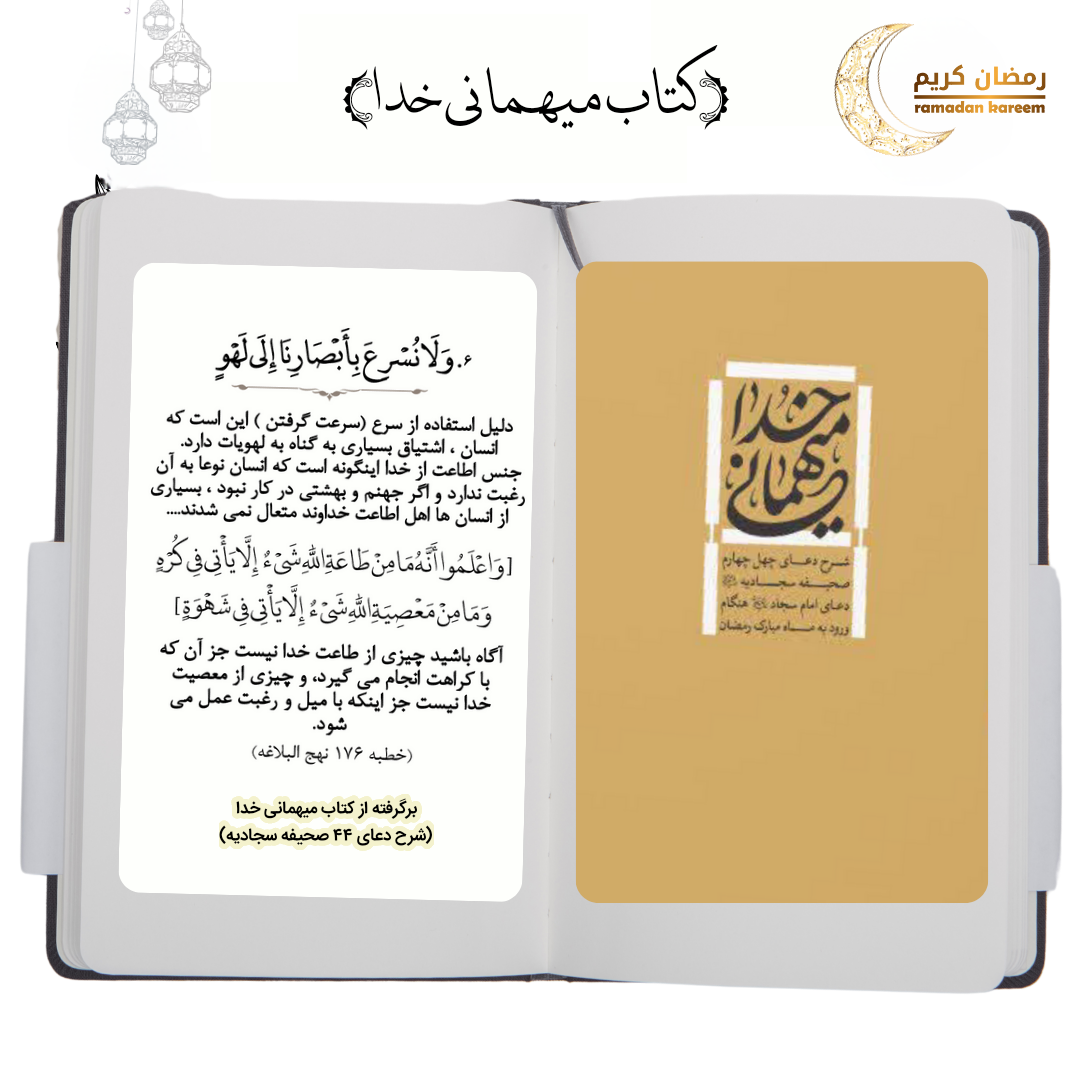 ﴿کتاب میهمانی خدا﴾
رمضان كريم
ramadan kareem
خدا
میهمانی
شرح دعای چهل چهارم
صحیفه سجادیه
دعای امام سجاد هنگام
ورود به ماه مبارک رمضان
۶. وَلَا نُسْرِعَ بِأَبْصَارِنَا إِلَى لَهْوٍ
دلیل استفاده از سرع (سرعت گرفتن ) این است که
انسان ، اشتیاق بسیاری به گناه به لهویات دارد.
جنس اطاعت از خدا اینگونه است که انسان نوعا به آن
رغبت ندارد و اگر جهنم و بهشتی در کار نبود ، بسیاری
از انسان ها اهل اطاعت خداوند متعال نمی شدند....
[وَاعْلَمُوا أَنَّهُ مَا مِنْ طَاعَةِ اللَّهِ شَيْءٌ إِلَّا يَأْتِي فِي كُرْهٍ
وَمَا مِنْ مَعْصِيَةِ اللَّهِ شَيْءٌ إِلَّا يَأْتِي فِي شَهْوَةٍ]
آگاه باشید چیزی از طاعت خدا نیست جز آن که
با کراهت انجام می گیرد، و چیزی از معصیت
خدا نیست جز اینکه با میل و رغبت عمل می
شود.
(خطبه ۱۷۶ نهج البلاغه)
برگرفته از کتاب میهمانی خدا
(شرح دعای ۴۴ صحیفه سجادیه)